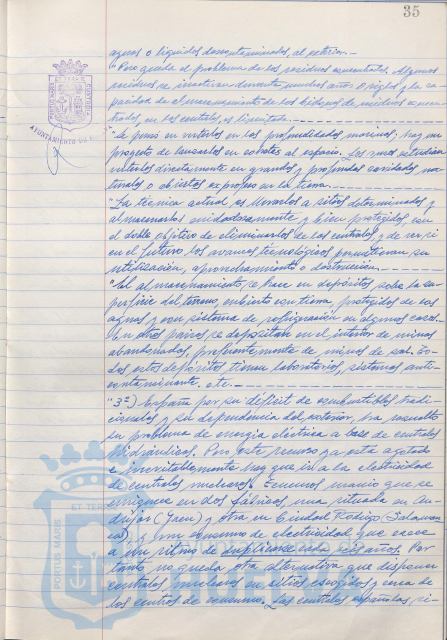 35
aguas o líquidos descontaminados, al exterior.-
"Pero queda el problema de los residuos concentrados. Algunos
residuos se inactivan durante muchos años o siglos y la ca-
pacidad de almacenamiento de los bidones de residuos concen-
trados, en las centrales, es limitada.
Se pensó en verterlos en las profundidades marinas; hay un
proyecto de lanzarlos en cohetes al espacio. Los rusos estudian
verterlos directamente en grandes y profundas cavidades na-
turales o abiertas exprofeso en la tierra.
"La técnica actual, es llevarlos a sitios determinados y
almacenarlos cuidadosamente y bien protegidos, con
el doble objetivo de eliminarlos de las centrales y de ver si
en el futuro los avances tecnológicos permitieran su
utilización, aprovechamiento o destrucción.
"El almacenamiento, se hace en depósitos, sobre la su-
perficie del terreno, cubierto con tierra, protegidos de las
aguas y con sistema de refrigeración en algunos casos.
En otros países, se depositan en el interior de minas
abandonadas, preferentemente de minas de sal. To-
dos estos depósitos tienen laboratorios, sistemas anti-
contaminante, etc.-
"3º) España por su déficit de combustibles tradi-
cionales y su dependencia del exterior, ha resuelto
su problema de energía eléctrica a base de centrales
hidráulicas. Pero este recurso ya está agotado
e inevitablemente hay que ir a la electricidad
de centrales nucleares. Tenemos uranio que se
enriquece en dos fábricas, una situada en An-
dújar (Jaén) y otra en Ciudad Rodrigo, Salaman
ca), y un consumo de electricidad que crece
a un ritmo de duplicarse cada seis años. Por
tanto no queda otra alternativa que disponer
centrales nucleares en sitios escogidos y cerca de
los centros de consumo. Las centrales españolas, si-
AYUNTAMIENTO DE
PORTUS MARIS
ET TERRAE
CUSTODIA
PORTUS MARIS
ET TERRAE